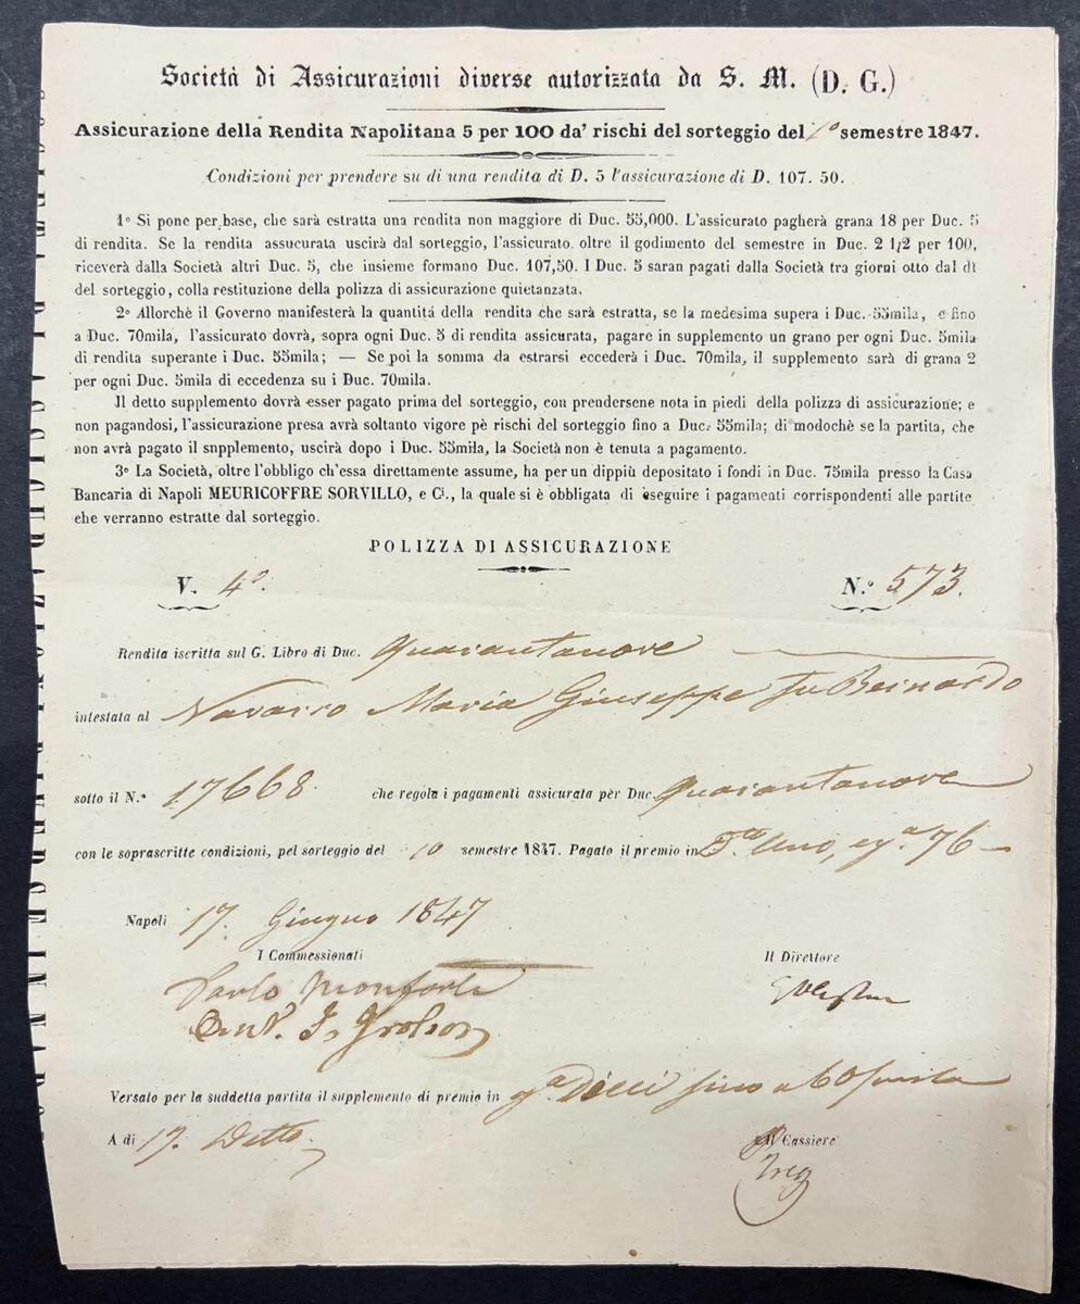 Società di Assicurazioni diverse autorizzata da S. M. (D. G.)
Assicurazione della Rendita Napolitana 5 per 100 da' rischi del sorteggio del 1º semestre 1847.
Condizioni per prendere su di una rendita di D. 5 l'assicurazione di D. 107. 50.
1º Si pone per base, che sarà estratta una rendita non maggiore di Duc. 55,000. L'assicurato pagherà grana 18 per Duc. 5
di rendita. Se la rendita assucurata uscirà dal sorteggio, l'assicurato oltre il godimento del semestre in Duc. 2 1/2 per 100,
riceverà dalla Società altri Duc. 5, che insieme formano Duc. 107,50. I Duc. 5 saran pagati dalla Società tra giorni otto dal dì
del sorteggio, colla restituzione della polizza di assicurazione quietanzata.
2º Allorchè il Governo manifesterà la quantitá della rendita che sarà estratta, se la medesima supera i Duc. 55mila, e fino
a Duc. 70mila, l'assicurato dovrà, sopra ogni Duc. 5 di rendita assicurata, pagare in supplemento un grano per ogni Duc. 5mila
di rendita superante i Duc. 55mila; — Se poi la somma da estrarsi eccederà i Duc. 70mila, il supplemento sarà di grana 2
per ogni Duc. 5mila di eccedenza su i Duc. 70mila.
Il detto supplemento dovrà esser pagato prima del sorteggio, con prendersene nota in piedi della polizza di assicurazione; e
non pagandosi, l'assicurazione presa avrà soltanto vigore pè rischi del sorteggio fino a Duc. 55mila; di modochè se la partita, che
non avrà pagato il snpplemento, uscirà dopo i Duc. 55mila, la Società non è tenuta a pagamento.
3º La Società, oltre l'obbligo ch'essa direttamente assume, ha per un dippiù depositato i fondi in Duc. 75mila presso la Casa
Bancaria di Napoli MEURICOFFRE SORVILLO, e Ci., la quale si è obbligata di eseguire i pagamenti corrispondenti alle partite
che verranno estratte dal sorteggio.
POLIZZA DI ASSICURAZIONE
V. 4º. N.º 573.
Rendita iscritta sul G. Libro di Duc. Quarantanove
intestata al Navarro Maria Giuseppe fu Bernardo
sotto il N.º 17668. che regola i pagamenti assicurata per Duc. Quarantanove
con le soprascritte condizioni, pel sorteggio del 1º semestre 1847. Pagato il premio in Uno, 76
Napoli 17. Giugno 1847
I Commessionati Il Direttore
Carlo Monforte
Versato per la suddetta partita il supplemento di premio in gª Dieci fino a 60 mila
A di 17. Detto. Il Cassiere